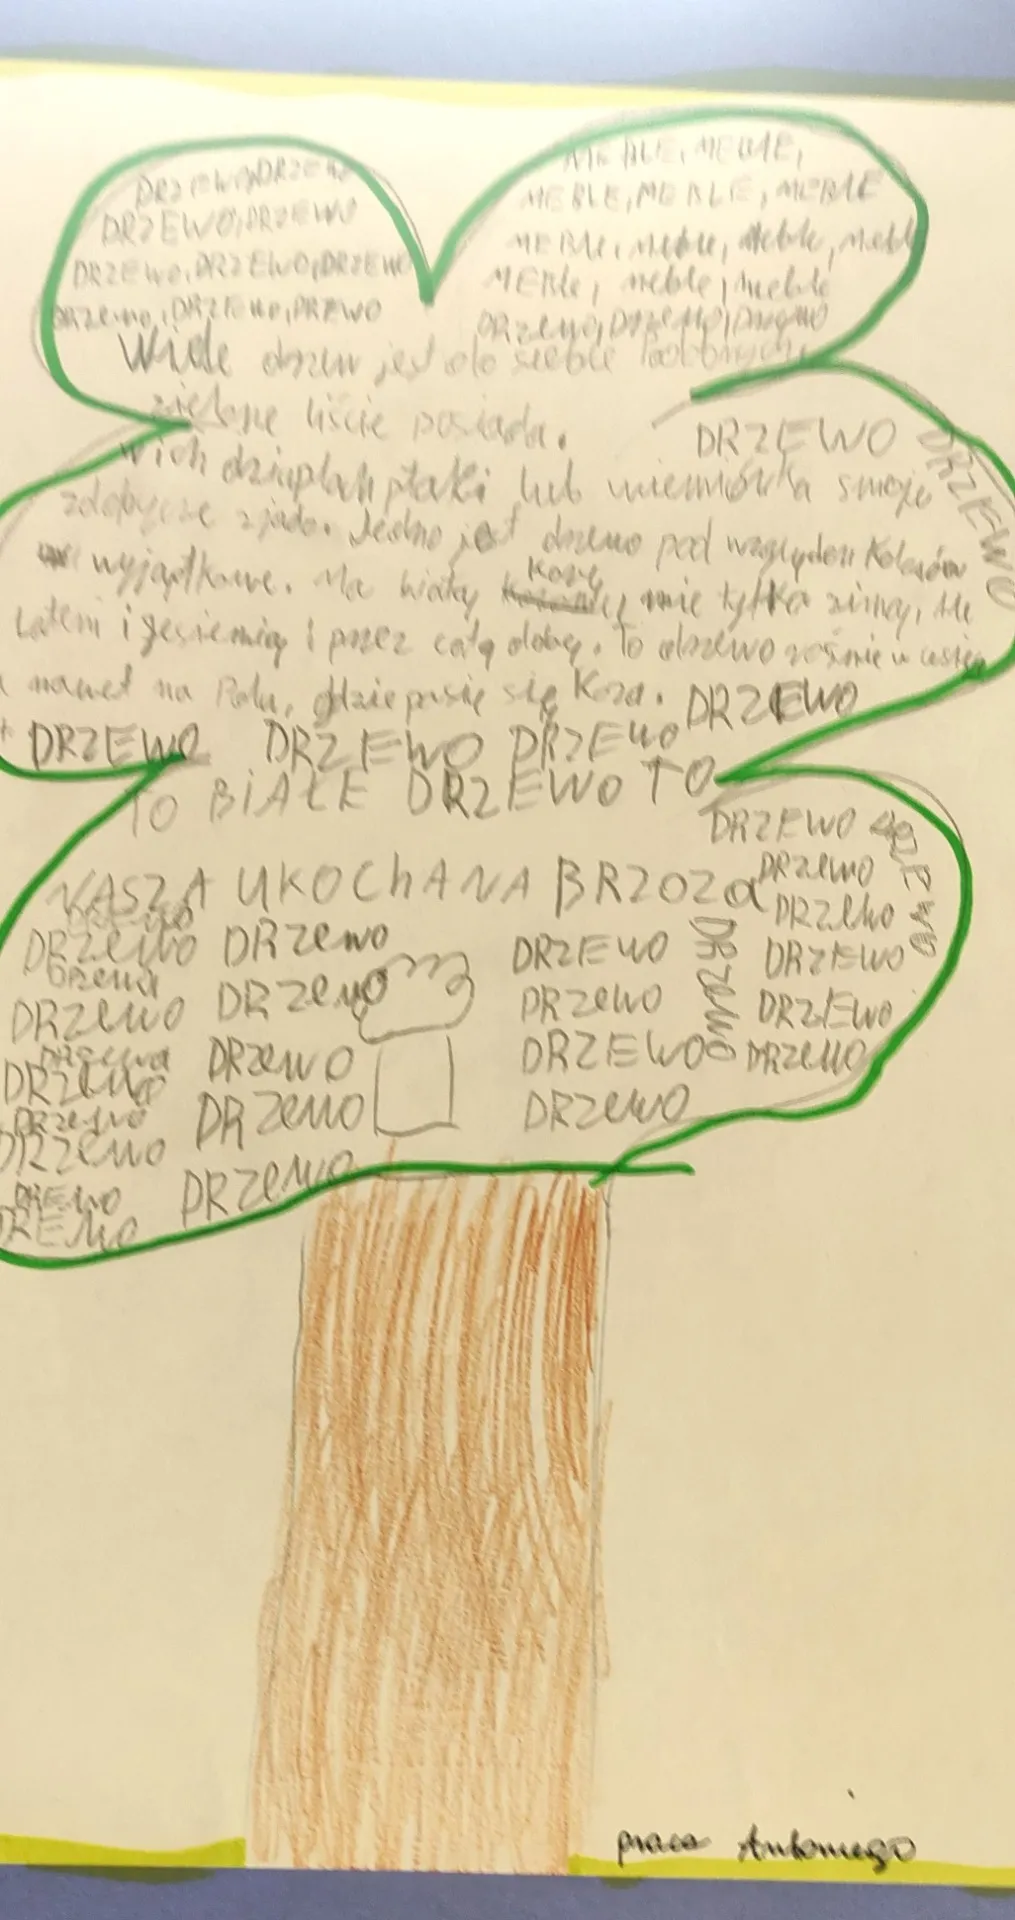 DRZEWO, DRZEWO
DRZEWO, DRZEWO
DRZEWO, DRZEWO, DRZEWO
DRzewo, DRZEwo, DRZEWO
MEBLE, MEBLE,
MEBLE, MEBLE, MEBLE
MEBLE, meble, meble, meble
MEBle, meble, meble
DRzewo, Drzewo, Drzewo
Wiele drzew jest do siebie
zielone liście posiada.
DRZEWO
DRZEWO
W ich dziuplah ptaki lub wiewiórka swoje
zdobycze zjada. Jedno jest drzewo pod względem Kolorów
wyjątkowe. Ma białą
Korę
nie tylko zimą, ale
Latem i jesienią i przez całą dobę. To drzewo rośnie w
a nawet na Polu, gdzie pasie się Koza. DRZEWO
DRZEWO DRZEWO DRZEwo
TO BIAŁE DRZEWO TO
NASZA UKOChANA BRZOZa
DRZEWO
DRzewo
DRZewo
DRZEWO
DRZEWO
DRzewo
DRZEWO
DRZewo DRzewo
Drzewa
DRZewo DRzewo
Drzewa
DRZewo DRzewo
DRzewo
DRZewo DRZewo
DREwo
DREwo DRzewo
DRZEwo
DRzewo
DRZEWO
DRzewo
DRZEWO
praca Antoniego